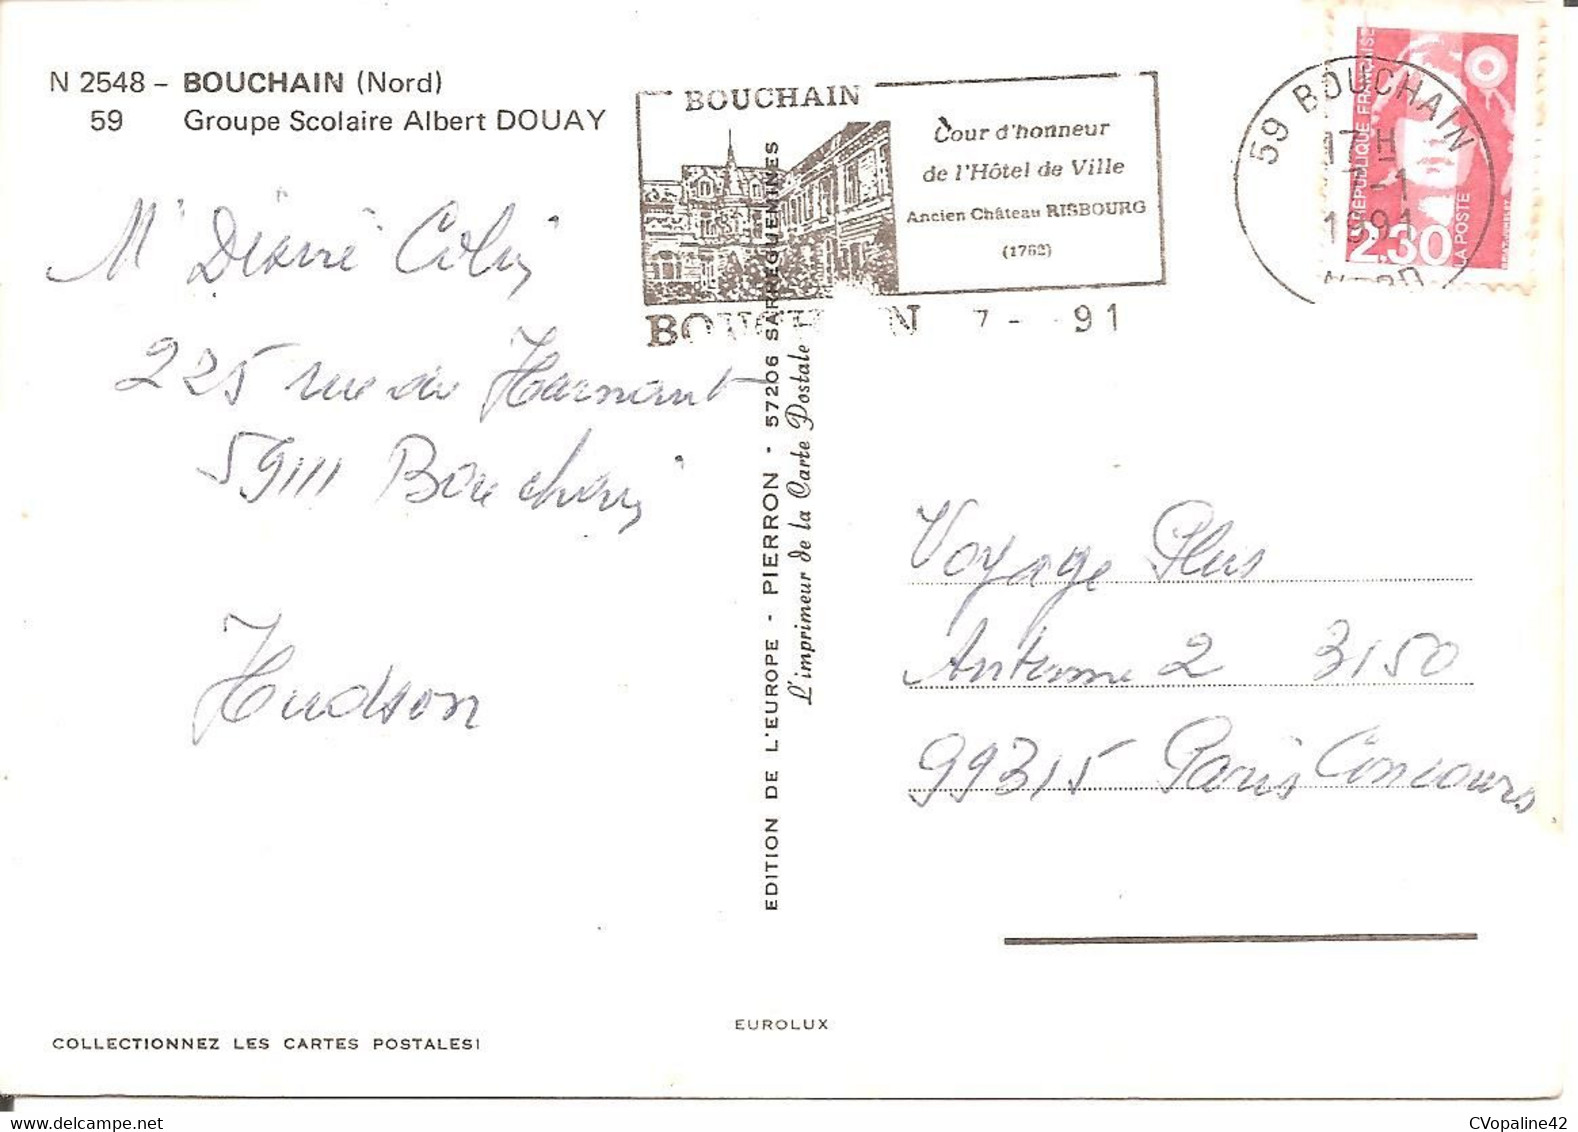 N 2548 - BOUCHAIN (Nord)
59 Groupe Scolaire Albert DOUAY
BOUCHAIN
Cour d'honneur
de l'Hôtel de Ville
Ancien Château RISBOURG
(1762)
BOUCHAIN 7 - 91
59 BOUCHAIN
17 H
7-1
1991
NORD
REPUBLIQUE FRANÇAISE
2,30
LA POSTE
M Colin
225 rue de
59111 Bouchain
Hudson
EDITION DE L'EUROPE - PIERRON - 57206 SARREGUEMINES
L'imprimeur de la Carte Postale
Voyage Plus
Antenne 2 3150
99315 Paris Concours
EUROLUX
COLLECTIONNEZ LES CARTES POSTALES!
CVopaline42